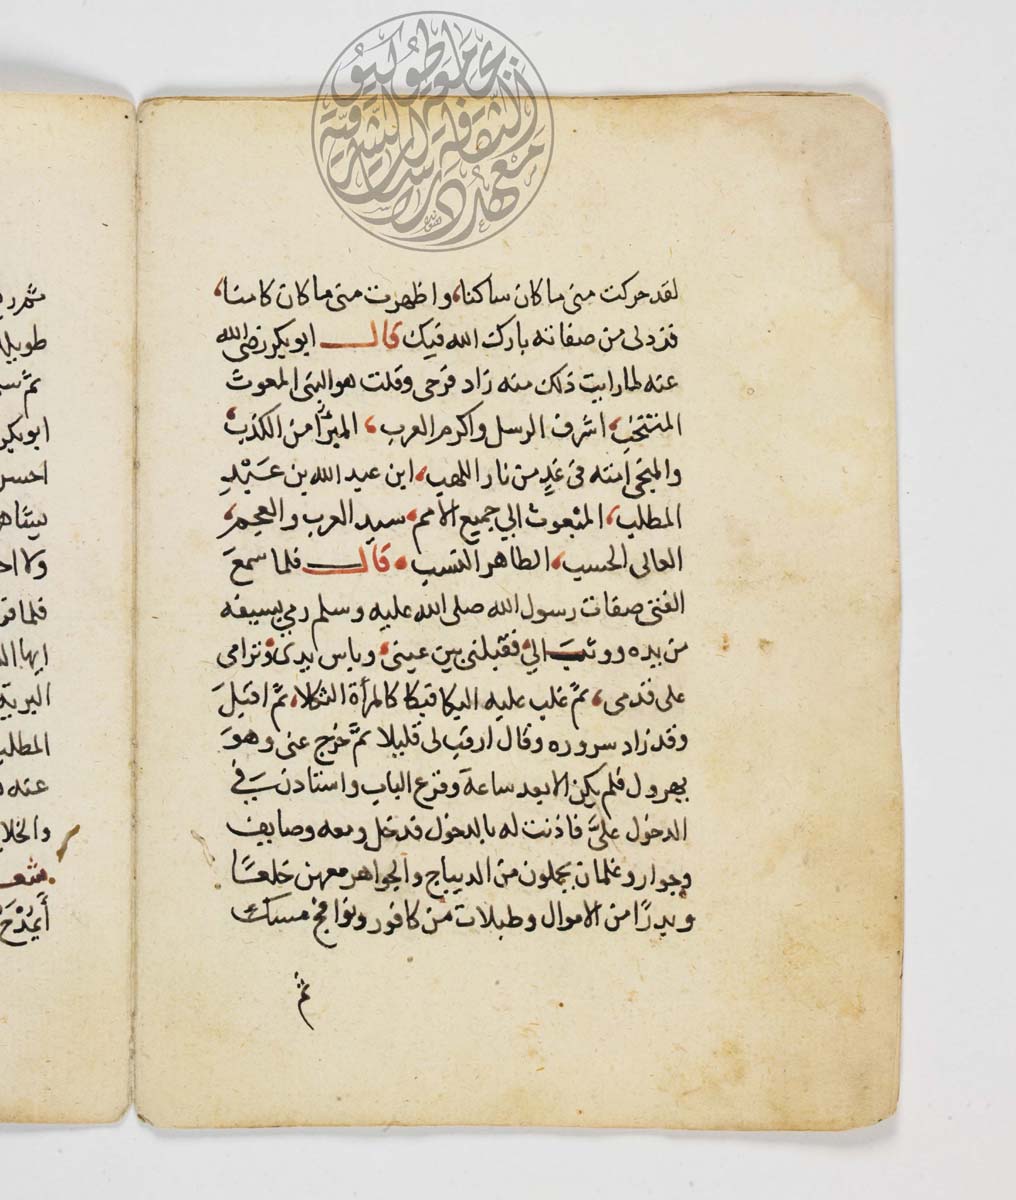 جامعة طوكيو
معهد الثقافة والدراسات الشرقية
لقد حركت منى ما كان ساكنا، واظهرت منى ما كان كامنا،
فزدلى من صفاته بارك الله فيك قال ابو بكر رضى الله
عنه لما رايت ذلك منه زاد فرحى وقلت هو النبى المعوث
المنتخب، اشرف الرسل واكرم العرب، المبرّأ من الكذب،
والمنجى امته فى غدٍ من نار اللهب، ابن عبد الله بن عَبْدِ
المطلب، المبعوث الي جميع الامم، سيد العرب والعجم،
العالى الحسب، الطاهر النسب، قال فلما سمعَ
الفتى صفات رسول الله صلى الله عليه وسلم رمي بسيفه
من يده ووثبَ اليّ فقبلنى بين عينى، وباس يدى وترامى
على قدمى، ثمّ غلب عليه البكا فبكا كالمرأة الثكلا، ثمّ اقبلَ
وقد زاد سروره وقال ارقب لى قليلا ثمّ خرج عنى وهوَ
يهرول فلم يكن الا بعد ساعة وقرع الباب واستاذنَ في
الدخول علىَّ فاذنت له بالدخول فدخل ومعه وصايف
وجوار وغلمان يحملون من الديباج والجواهر معهن خلعًا
وبدرًا من الاموال وطبلات من كافور ونوافج مسك
ثم
ثمّ
طويلا
ابو بكر
احسن
ولا
فلما
ايها
المطلب
عنه